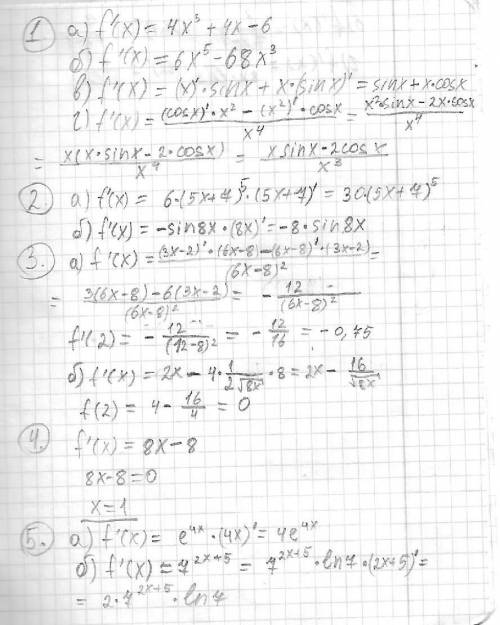 1. а) f'(x) = 4x³ + 4x - 6
б) f'(x) = 6x⁵ - 68x³
в) f'(x) = (x)' · sinx + x · (sinx)' = sinx + x · cosx
г) f'(x) = ((cosx)' · x² - (x²)' · cosx)/x⁴ = (x² sinx - 2x · cosx)/x⁴
= x(x · sinx - 2 · cosx)/x⁴ = (x sinx - 2cosx)/x³
2. а) f'(x) = 6 · (5x + 7)⁵ · (5x + 7)' = 30 · (5x + 7)⁵
б) f'(x) = -sin8x · (8x)' = -8 · sin8x
3. а) f'(x) = ((3x-2)' · (6x-8) - (6x-8)' · (3x-2))/(6x-8)² =
= (3(6x-8) - 6(3x-2))/(6x-8)² = - 12/(6x-8)²
f'(2) = - 12/(12-8)² = - 12/16 = -0,75
б) f'(x) = 2x - 4 · 1/(2√8x) · 8 = 2x - 16/√8x
f(2) = 4 - 16/4 = 0
4. f'(x) = 8x - 8
8x - 8 = 0
x = 1
5. а) f'(x) = e⁴ˣ · (4x)' = 4e⁴ˣ
б) f'(x) = 7²ˣ⁺⁵ = 7²ˣ⁺⁵ · ln7 · (2x+5)' =
= 2 · 7²ˣ⁺⁵ · ln7